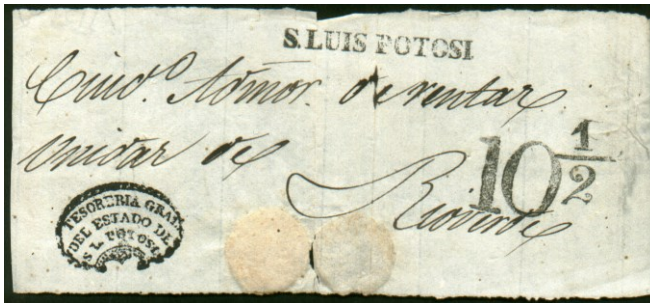 S.LUIS POTOSI
Ciud.º Admor. de rentas
unidas de
Rioverde
10 1/2
TESORERIA GRAL.
DEL ESTADO DE
S. L. POTOSI